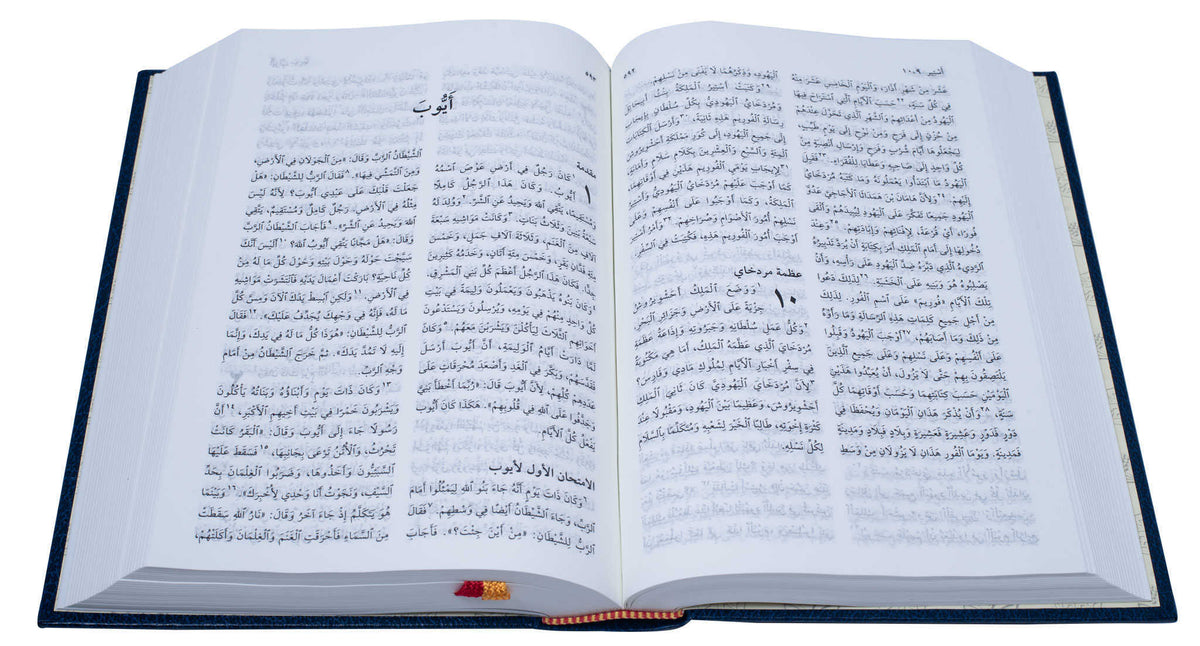 أستير ٩، ١٠
٥٩٢
عَشَرَ مِنْ شَهْرِ أَذَارَ، وَٱلْيَوْمَ ٱلْخَامِسَ عَشَرَ مِنْهُ
فِي كُلِّ سَنَةٍ، ٢٢حَسَبَ ٱلْأَيَّامِ ٱلَّتِي ٱسْتَرَاحَ فِيهَا
ٱلْيَهُودُ مِنْ أَعْدَائِهِمْ وَٱلشَّهْرِ ٱلَّذِي تَحَوَّلَ عِنْدَهُمْ
مِنْ حُزْنٍ إِلَى فَرَحٍ وَمِنْ نَوْحٍ إِلَى يَوْمٍ طَيِّبٍ،
لِيَجْعَلُوهَا أَيَّامَ شُرْبٍ وَفَرَحٍ وَإِرْسَالِ أَنْصِبَةٍ مِنْ
كُلِّ وَاحِدٍ إِلَى صَاحِبِهِ وَعَطَايَا لِلْفُقَرَاءِ. ٢٣فَقَبِلَ
ٱلْيَهُودُ مَا ٱبْتَدَأُوا يَعْمَلُونَهُ وَمَا كَتَبَهُ مُرْدَخَايُ
إِلَيْهِمْ. ٢٤وَلِأَنَّ هَامَانَ بْنَ هَمَدَاثَا ٱلْأَجَاجِيَّ عَدُوَّ
ٱلْيَهُودِ جَمِيعًا تَفَكَّرَ عَلَى ٱلْيَهُودِ لِيُبِيدَهُمْ وَأَلْقَى
فُورًا، أَيْ قُرْعَةً، لِإِفْنَائِهِمْ وَإِبَادَتِهِمْ. ٢٥وَعِنْدَ
دُخُولِهَا إِلَى أَمَامِ ٱلْمَلِكِ أَمَرَ بِكِتَابَةٍ أَنْ يُرَدَّ تَدْبِيرُهُ
ٱلرَّدِيءُ ٱلَّذِي دَبَّرَهُ ضِدَّ ٱلْيَهُودِ عَلَى رَأْسِهِ، وَأَنْ
يَصْلِبُوهُ هُوَ وَبَنِيهِ عَلَى ٱلْخَشَبَةِ. ٢٦لِذَلِكَ دَعُوا
تِلْكَ ٱلْأَيَّامَ «فُورِيمَ» عَلَى ٱسْمِ ٱلْفُورِ. لِذَلِكَ
مِنْ أَجْلِ جَمِيعِ كَلِمَاتِ هَذِهِ ٱلرِّسَالَةِ وَمَا رَأَوْهُ
مِنْ ذَلِكَ، وَمَا أَصَابَهُمْ، ٢٧أَوْجَبَ ٱلْيَهُودُ وَقَبِلُوا
عَلَى أَنْفُسِهِمْ وَعَلَى نَسْلِهِمْ وَعَلَى جَمِيعِ ٱلَّذِينَ
يَلْتَصِقُونَ بِهِمْ حَتَّى لَا يَزُولَ، أَنْ يُعَيِّدُوا هَذَيْنِ
ٱلْيَوْمَيْنِ حَسَبَ كِتَابَتِهِمَا وَحَسَبَ أَوْقَاتِهِمَا كُلَّ
سَنَةٍ، ٢٨وَأَنْ يُذْكَرَ هَذَانِ ٱلْيَوْمَانِ وَيُحْفَظَا فِي
دَوْرٍ فَدَوْرٍ وَعَشِيرَةٍ فَعَشِيرَةٍ وَبِلَادٍ فَبِلَادٍ وَمَدِينَةٍ
فَمَدِينَةٍ. وَيَوْمَا ٱلْفُورِ هَذَانِ لَا يَزُولَانِ مِنْ وَسَطِ
ٱلْيَهُودِ، وَذِكْرُهُمَا لَا يَفْنَى مِنْ نَسْلِهِمْ.
٢٩وَكَتَبَتْ أَسْتِيرُ ٱلْمَلِكَةُ بِنْتُ أَبِيحَائِلَ
وَمُرْدَخَايُ ٱلْيَهُودِيُّ بِكُلِّ سُلْطَانٍ بِإِيجَابِ
رِسَالَةِ ٱلْفُورِيمِ هَذِهِ ثَانِيَةً، ٣٠وَأَرْسَلَ ٱلْكِتَابَاتِ
إِلَى جَمِيعِ ٱلْيَهُودِ، إِلَى كُوَرِ مَمْلَكَةِ أَحَشْوِيرُوشَ
ٱلْمِئَةِ وَٱلسَّبْعِ وَٱلْعِشْرِينَ بِكَلَامِ سَلَامٍ وَأَمَانَةٍ،
٣١لِإِيجَابِ يَوْمَيِ ٱلْفُورِيمِ هَذَيْنِ فِي أَوْقَاتِهِمَا،
كَمَا أَوْجَبَ عَلَيْهِمْ مُرْدَخَايُ ٱلْيَهُودِيُّ وَأَسْتِيرُ
ٱلْمَلِكَةُ، وَكَمَا أَوْجَبُوا عَلَى أَنْفُسِهِمْ وَعَلَى
نَسْلِهِمْ أُمُورَ ٱلْأَصْوَامِ وَصُرَاخِهِمْ. ٣٢وَأَمْرُ أَسْتِيرَ
أَوْجَبَ أُمُورَ ٱلْفُورِيمِ هَذِهِ، فَكُتِبَتْ فِي ٱلسِّفْرِ.
عظمة مردخاي
١٠ ١وَوَضَعَ ٱلْمَلِكُ أَحَشْوِيرُوشُ
جِزْيَةً عَلَى ٱلْأَرْضِ وَجَزَائِرِ ٱلْبَحْرِ.
٢وَكُلُّ عَمَلِ سُلْطَانِهِ وَجَبَرُوتِهِ وَإِذَاعَةُ عَظَمَةِ
مُرْدَخَايَ ٱلَّذِي عَظَّمَهُ ٱلْمَلِكُ، أَمَا هِيَ مَكْتُوبَةٌ
فِي سِفْرِ أَخْبَارِ ٱلْأَيَّامِ لِمُلُوكِ مَادِي وَفَارِسَ؟
٣لِأَنَّ مُرْدَخَايَ ٱلْيَهُودِيَّ كَانَ ثَانِيَ ٱلْمَلِكِ
أَحَشْوِيرُوشَ، وَعَظِيمًا بَيْنَ ٱلْيَهُودِ، وَمَقْبُولًا عِنْدَ
كَثْرَةِ إِخْوَتِهِ، طَالِبًا ٱلْخَيْرَ لِشَعْبِهِ وَمُتَكَلِّمًا بِٱلسَّلَامِ
لِكُلِّ نَسْلِهِ.
٥٩٣
أَيُّوبَ
مقدمة
١ ١كَانَ رَجُلٌ فِي أَرْضِ عَوْصَ ٱسْمُهُ
أَيُّوبُ. وَكَانَ هَذَا ٱلرَّجُلُ كَامِلًا
وَمُسْتَقِيمًا، يَتَّقِي ٱللهَ وَيَحِيدُ عَنِ ٱلشَّرِّ. ٢وَوُلِدَ لَهُ
سَبْعَةُ بَنِينَ وَثَلَاثُ بَنَاتٍ. ٣وَكَانَتْ مَوَاشِيهِ سَبْعَةَ
آلَافٍ مِنَ ٱلْغَنَمِ، وَثَلَاثَةَ آلَافِ جَمَلٍ، وَخَمْسَ
مِئَةِ فَدَّانِ بَقَرٍ، وَخَمْسَ مِئَةِ أَتَانٍ، وَخَدَمُهُ كَثِيرِينَ
جِدًّا. فَكَانَ هَذَا ٱلرَّجُلُ أَعْظَمَ كُلِّ بَنِي ٱلْمَشْرِقِ.
٤وَكَانَ بَنُوهُ يَذْهَبُونَ وَيَعْمَلُونَ وَلِيمَةً فِي بَيْتِ
كُلِّ وَاحِدٍ مِنْهُمْ فِي يَوْمِهِ، وَيُرْسِلُونَ وَيَسْتَدْعُونَ
أَخَوَاتِهِمِ ٱلثَّلَاثَ لِيَأْكُلْنَ وَيَشْرَبْنَ مَعَهُمْ. ٥وَكَانَ
لَمَّا دَارَتْ أَيَّامُ ٱلْوَلِيمَةِ، أَنَّ أَيُّوبَ أَرْسَلَ
فَقَدَّسَهُمْ، وَبَكَّرَ فِي ٱلْغَدِ وَأَصْعَدَ مُحْرَقَاتٍ عَلَى
عَدَدِهِمْ كُلِّهِمْ، لِأَنَّ أَيُّوبَ قَالَ: «رُبَّمَا أَخْطَأَ بَنِيَّ
وَجَدَّفُوا عَلَى ٱللهِ فِي قُلُوبِهِمْ». هَكَذَا كَانَ أَيُّوبُ
يَفْعَلُ كُلَّ ٱلْأَيَّامِ.
الامتحان الأول لأيوب
٦وَكَانَ ذَاتَ يَوْمٍ أَنَّهُ جَاءَ بَنُو ٱللهِ لِيَمْثُلُوا أَمَامَ
ٱلرَّبِّ، وَجَاءَ ٱلشَّيْطَانُ أَيْضًا فِي وَسْطِهِمْ. ٧فَقَالَ
ٱلرَّبُّ لِلشَّيْطَانِ: «مِنْ أَيْنَ جِئْتَ؟». فَأَجَابَ
ٱلشَّيْطَانُ ٱلرَّبَّ وَقَالَ: «مِنَ ٱلْجَوَلَانِ فِي ٱلْأَرْضِ،
وَمِنَ ٱلتَّمَشِّي فِيهَا». ٨فَقَالَ ٱلرَّبُّ لِلشَّيْطَانِ: «هَلْ
جَعَلْتَ قَلْبَكَ عَلَى عَبْدِي أَيُّوبَ؟ لِأَنَّهُ لَيْسَ
مِثْلُهُ فِي ٱلْأَرْضِ. رَجُلٌ كَامِلٌ وَمُسْتَقِيمٌ، يَتَّقِي
ٱللهَ وَيَحِيدُ عَنِ ٱلشَّرِّ». ٩فَأَجَابَ ٱلشَّيْطَانُ ٱلرَّبَّ
وَقَالَ: «هَلْ مَجَّانًا يَتَّقِي أَيُّوبُ ٱللهَ؟ ١٠أَلَيْسَ أَنَّكَ
سَيَّجْتَ حَوْلَهُ وَحَوْلَ بَيْتِهِ وَحَوْلَ كُلِّ مَا لَهُ مِنْ
كُلِّ نَاحِيَةٍ؟ بَارَكْتَ أَعْمَالَ يَدَيْهِ فَٱنْتَشَرَتْ مَوَاشِيهِ
فِي ٱلْأَرْضِ. ١١وَلَكِنِ ٱبْسِطْ يَدَكَ ٱلْآنَ وَمَسَّ كُلَّ
مَا لَهُ، فَإِنَّهُ فِي وَجْهِكَ يُجَدِّفُ عَلَيْكَ». ١٢فَقَالَ
ٱلرَّبُّ لِلشَّيْطَانِ: «هُوَذَا كُلُّ مَا لَهُ فِي يَدِكَ، وَإِنَّمَا
إِلَيْهِ لَا تَمُدَّ يَدَكَ». ثُمَّ خَرَجَ ٱلشَّيْطَانُ مِنْ أَمَامِ
وَجْهِ ٱلرَّبِّ.
١٣وَكَانَ ذَاتَ يَوْمٍ وَأَبْنَاؤُهُ وَبَنَاتُهُ يَأْكُلُونَ
وَيَشْرَبُونَ خَمْرًا فِي بَيْتِ أَخِيهِمِ ٱلْأَكْبَرِ، ١٤أَنَّ
رَسُولًا جَاءَ إِلَى أَيُّوبَ وَقَالَ: «ٱلْبَقَرُ كَانَتْ
تَحْرُثُ، وَٱلْأُتُنُ تَرْعَى بِجَانِبِهَا، ١٥فَسَقَطَ عَلَيْهَا
ٱلسَّبَئِيُّونَ وَأَخَذُوهَا، وَضَرَبُوا ٱلْغِلْمَانَ بِحَدِّ
ٱلسَّيْفِ، وَنَجَوْتُ أَنَا وَحْدِي لِأُخْبِرَكَ». ١٦وَبَيْنَمَا
هُوَ يَتَكَلَّمُ إِذْ جَاءَ آخَرُ وَقَالَ: «نَارُ ٱللهِ سَقَطَتْ
مِنَ ٱلسَّمَاءِ فَأَحْرَقَتِ ٱلْغَنَمَ وَٱلْغِلْمَانَ وَأَكَلَتْهُمْ،